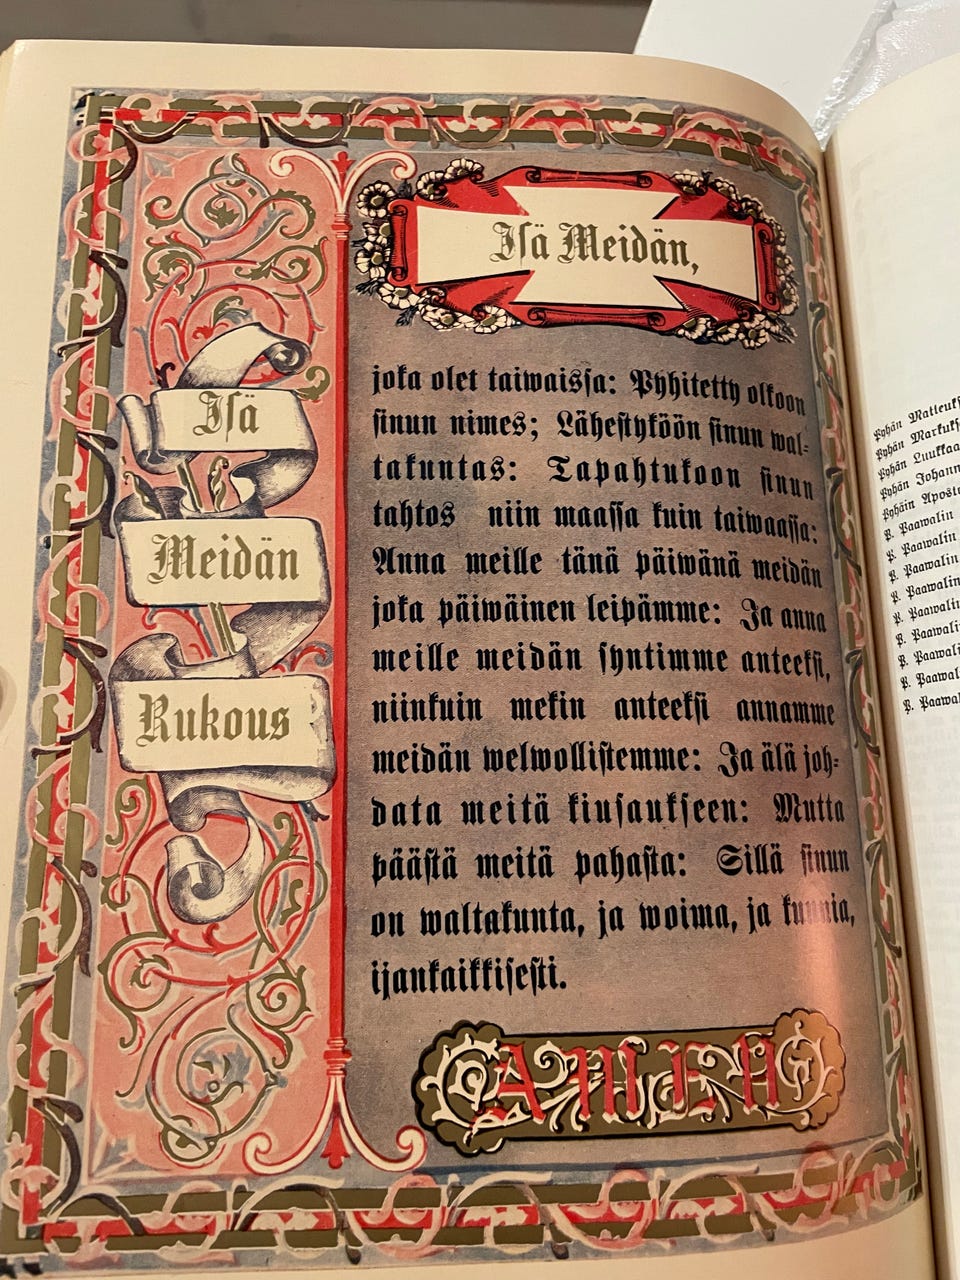 Isä
Meidän
Rukous
Isä Meidän,
joka olet taiwaissa: Pyhitetty olkoon
sinun nimes; Lähestyköön sinun wal-
takuntas: Tapahtukoon sinun
tahtos niin maassa kuin taiwaassa:
Anna meille tänä päiwänä meidän
joka päiwäinen leipämme: Ja anna
meille meidän syntimme anteeksi,
niinkuin mekin anteeksi annamme
meidän welwollistemme: Ja älä joh-
data meitä kiusaukseen: Mutta
päästä meitä pahasta: Sillä sinun
on waltakunta, ja woima, ja kunnia,
ijankaikkisesti.
AMEN
Pyhän Matteuks
Pyhän Markuks
Pyhän Luukkaa
Pyhän Johann
Pyhäin Aposto
P. Paawalin
P. Paawalin
P. Paawalin
P. Paawalin
P. Paawalin
P. Paawali
P. Paawali
P. Paawal
P. Paawal